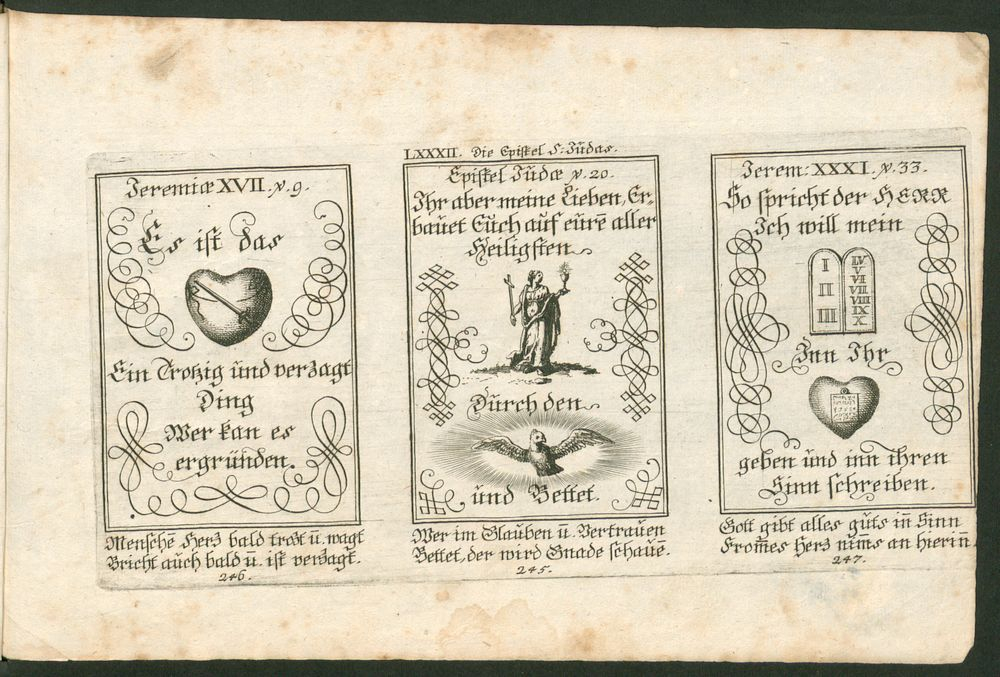 Jeremiæ XVII. v. 9.
Es ist das
Ein Trotzig und verzagt
Ding
Wer kan es
ergründen.
Menschē Hertz bald trotzt ū. wagt
Bricht auch bald ū. ist verzagt.
246.
LXXXII. Die Epistel S: Judas.
Epistel Judæ v. 20.
Ihr aber meine Lieben, Er-
bauet Euch auf eurē aller
Heiligsten
Durch den
und Bettet.
Wer im Glauben ū. Vertrauen
Bettet, der wird Gnade schauē.
245.
Jerem: XXXI. v. 33.
So spricht der HERR
Ich will mein
I IV
V
VI
II VII
VIII
III IX
X
Inn Ihr
geben und inn ihren
Sinn schreiben.
Gott gibt alles guts iñ Sinn
From̃es Hertz nim̃s an hieriñ
247.